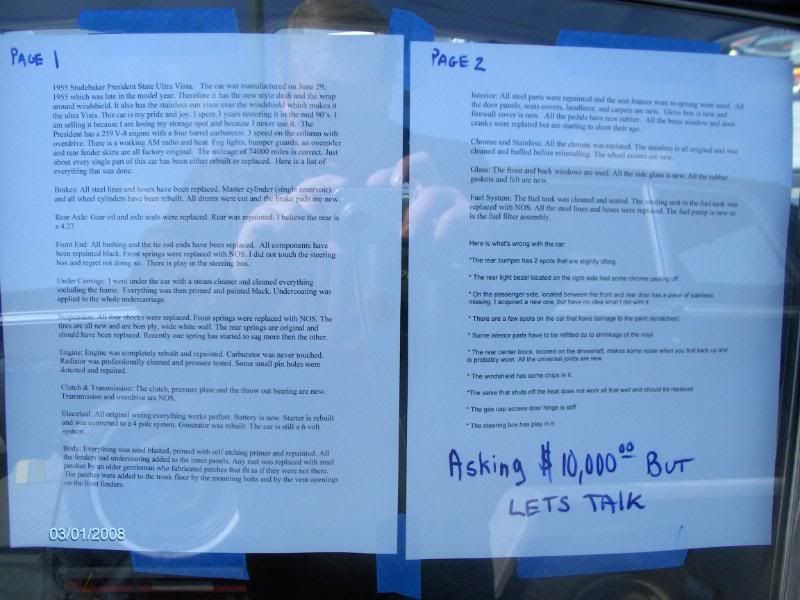 PAGE 1
1955 Studebaker President State Ultra Vista. The car was manufactured on June 29,
1955 which was late in the model year. Therefore it has the new style dash and the wrap
around windshield. It also has the stainless sun visor over the windshield which makes it
the ultra Vista. This car is my pride and joy. I spent 3 years restoring it in the mid 90's. I
am selling it because I am losing my storage spot and because I never use it. The
President has a 259 V-8 engine with a four barrel carburetor. 3 speed on the column with
overdrive. There is a working AM radio and heat. Fog lights, bumper guards, an overrider
and rear fender skirts are all factory original. The mileage of 74000 miles is correct. Just
about every part of this car has been either rebuilt or replaced. Here is a list of
everything that was done.
Brakes: All steel lines and hoses have been replaced. Master cylinder (single reservoir)
and all wheel cylinders have been rebuilt. All drums were cut and the brake pads are new.
Rear Axle: Gear oil and axle seals were replaced. Rear was repainted. I believe the rear is
a 4.27.
Front End: All bushing and the tie rod ends have been replaced. All components have
been repainted black. Front springs were replaced with NOS. I did not touch the steering
box and regret not doing so. There is play in the steering box.
Under Carriage: I went under the car with a steam cleaner and cleaned everything
including the frame. Everything was then primed and painted black. Undercoating was
applied to the whole undercarriage.
Suspension: All four shocks were replaced. Front springs were replaced with NOS. The
tires are all new and are bias ply, wide white wall. The rear springs are original and
should have been replaced. Recently one spring has started to sag more then the other.
Engine: Engine was completely rebuilt and repainted. Carburetor was never touched.
Radiator was professionally cleaned and pressure tested. Some small pin holes were
detected and repaired.
Clutch & Transmission: The clutch, pressure plate and the throw out bearing are new.
Transmission and overdrive are NOS.
Electrical: All original wiring everything works perfect. Battery is new. Starter is rebuilt
and was converted to a 4 pole system. Generator was rebuilt. The car is still a 6 volt
system.
Body: Everything was sand blasted, primed with self etching primer and repainted. All
the fenders had undercoating added to the inner panels. Any rust was replaced with steel
patches by an older gentleman who fabricated patches that fit as if they were not there.
The patches were added to the trunk floor by the mounting bolts and by the vent openings
on the front fenders.
03/01/2008
PAGE 2
Interior: All steel parts were repainted and the seat frames were re-sprung were need. All
the door panels, seats covers, headliner, and carpets are new. Glove box is new and
firewall cover is new. All the pedals have new rubber. All the brass window and door
cranks were replated but are starting to show their age.
Chrome and Stainless: All the chrome was replated. The stainless is all original and was
cleaned and buffed before reinstalling. The wheel covers are new.
Glass: The front and back windows are used. All the side glass is new. All the rubber
gaskets and felt are new.
Fuel System: The fuel tank was cleaned and sealed. The sending unit in the fuel tank was
replaced with NOS. All the steel lines and hoses were replaced. The fuel pump is new as
is the fuel filter assembly.
Here is what's wrong with the car
*The rear bumper has 2 spots that are slightly lifting
* The rear light bezel located on the right side had some chrome peeling off
* On the passenger side, located between the front and rear door has a piece of stainless
missing. I acquired a new one, but have no idea what I did with it
* There are a few spots on the car that have damage to the paint (scratches)
* Some interior parts have to be refitted do to shrinkage of the vinyl
* The rear center block, located on the driveshaft, makes some noise when you first back up and
is probably worn. All the universal joints are new
* The windshield has some chips in it
*The valve that shuts off the heat does not work all that well and should be replaced
* The gas cap access door hinge is stiff
* The steering box has play in it
Asking $10,000.00 BUT
LETS TALK